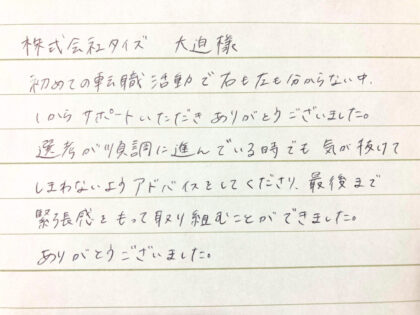 株式会社タイズ　大迫様
初めての転職活動で右も左も分からない中、
1からサポートいただきありがとうございました。
選考が順調に進んでいる時でも気が抜けて
しまわないようアドバイスをしてくださり、最後まで
緊張感をもって取り組むことができました。
ありがとうございました。